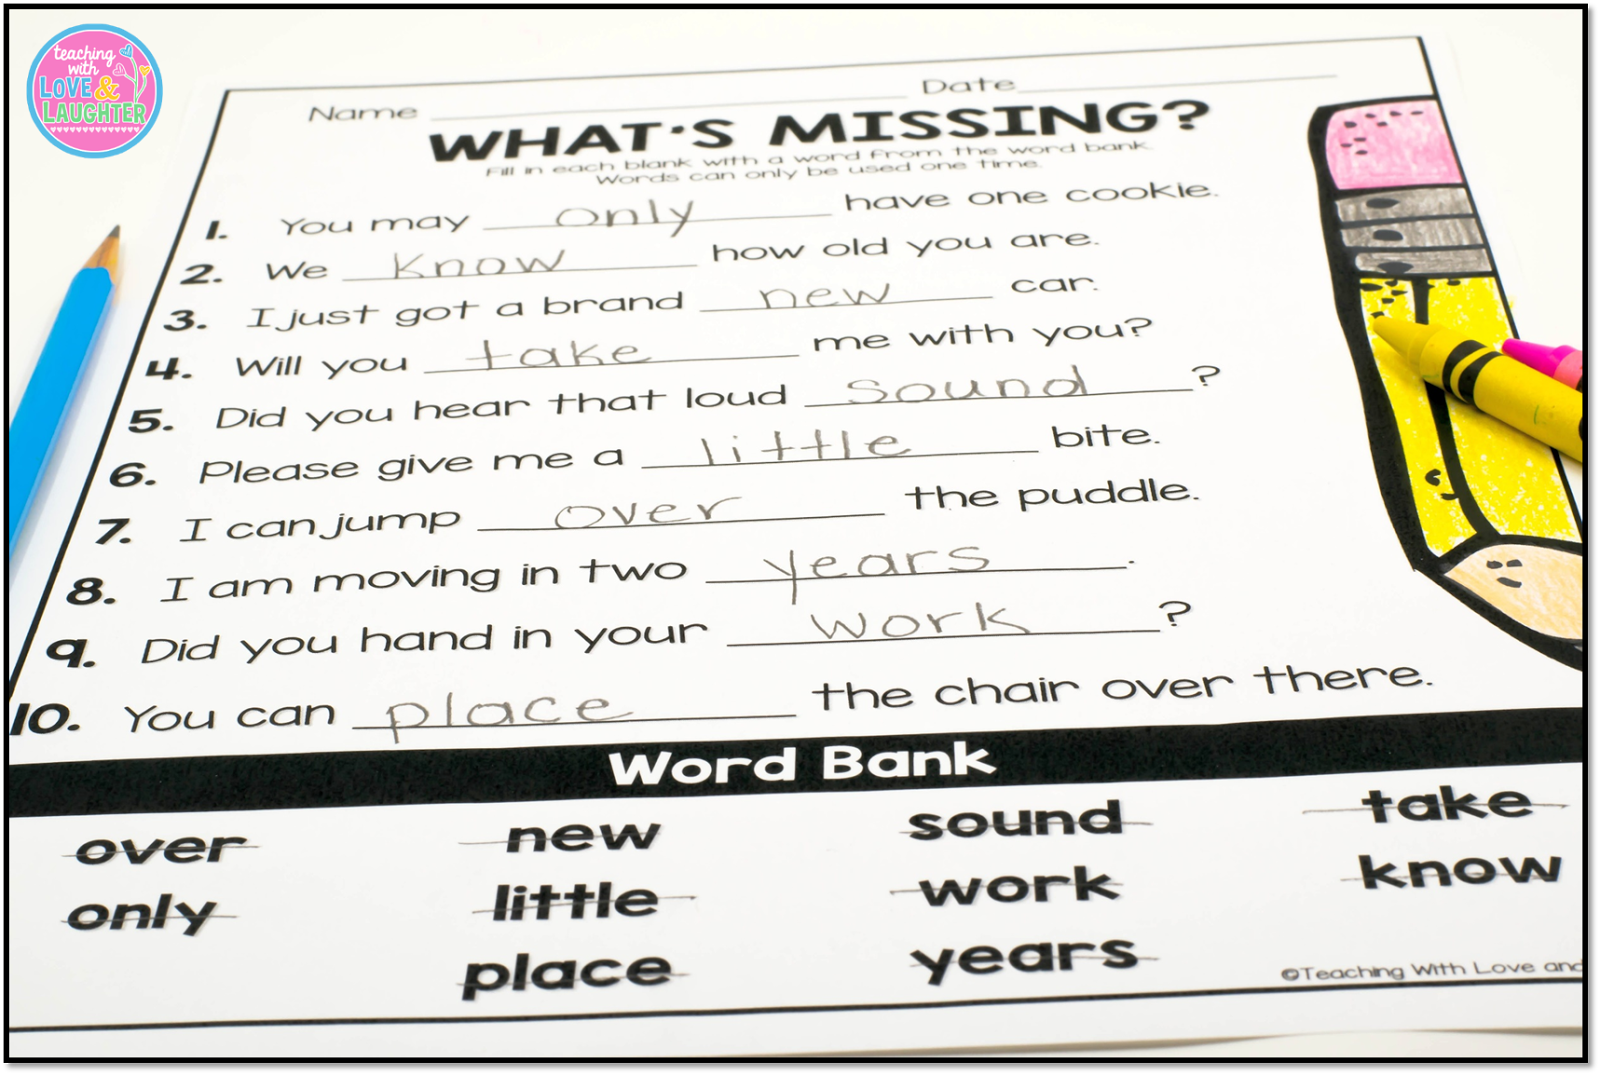 teaching
with
LOVE &
LAUGHTER
Name Date
WHAT'S MISSING?
Fill in each blank with a word from the word bank.
Words can only be used one time.
1. You may only have one cookie.
2. We know how old you are.
3. I just got a brand new car.
4. Will you take me with you?
5. Did you hear that loud sound?
6. Please give me a little bite.
7. I can jump over the puddle.
8. I am moving in two years.
9. Did you hand in your work?
10. You can place the chair over there.
Word Bank
over new sound take
only little work know
place years
©Teaching With Love and